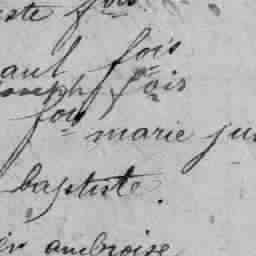 ste fois
aul fois
joseph fois
fois marie ju
baptiste.
er ambroise